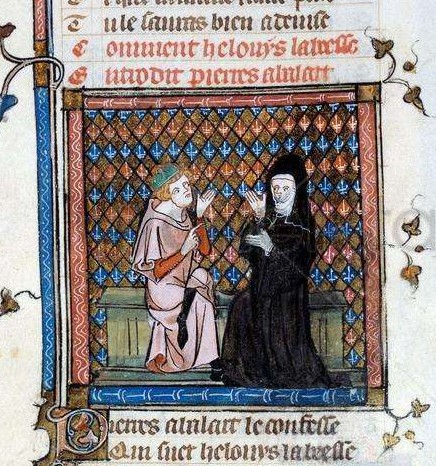 Tu le sauras bien a deuise
Comment helouys labeesse
pierres abalart
Pierres abalart le confesse
Que suer helouys labeesse